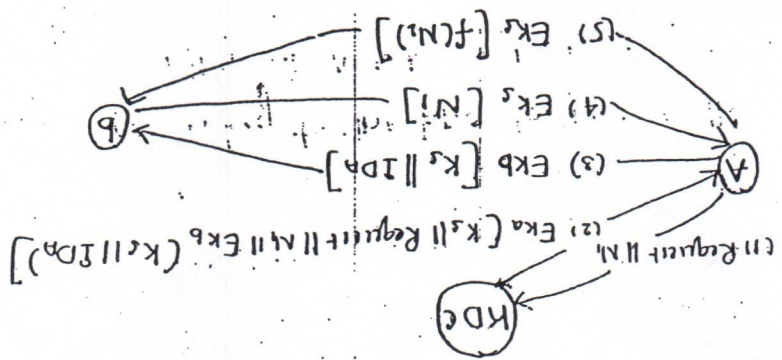 KDC
(1) Request || N1
(2) EKa [Ks || Request || N1 || EKb (Ks || IDA)]
A
(3) EKb [Ks || IDA]
B
(4) EKs [N2]
(5) EKs [f(N2)]